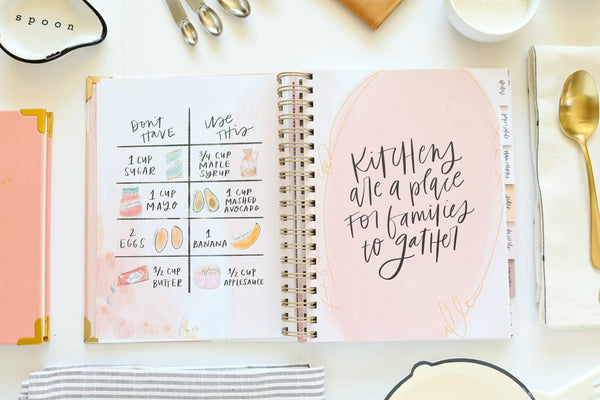 spoon
Don't
HAVE
Use
THIS
1 CUP
SUGAR
3/4 CUP
MAPLE
SYRUP
1 CUP
MAYO
1 CUP
MASHED
AVOCADO
2
EGGS
1
BANANA
1/2 CUP
BUTTER
1/2 CUP
APPLESAUCE
KITCHENS
are a place
FOR families
to gather